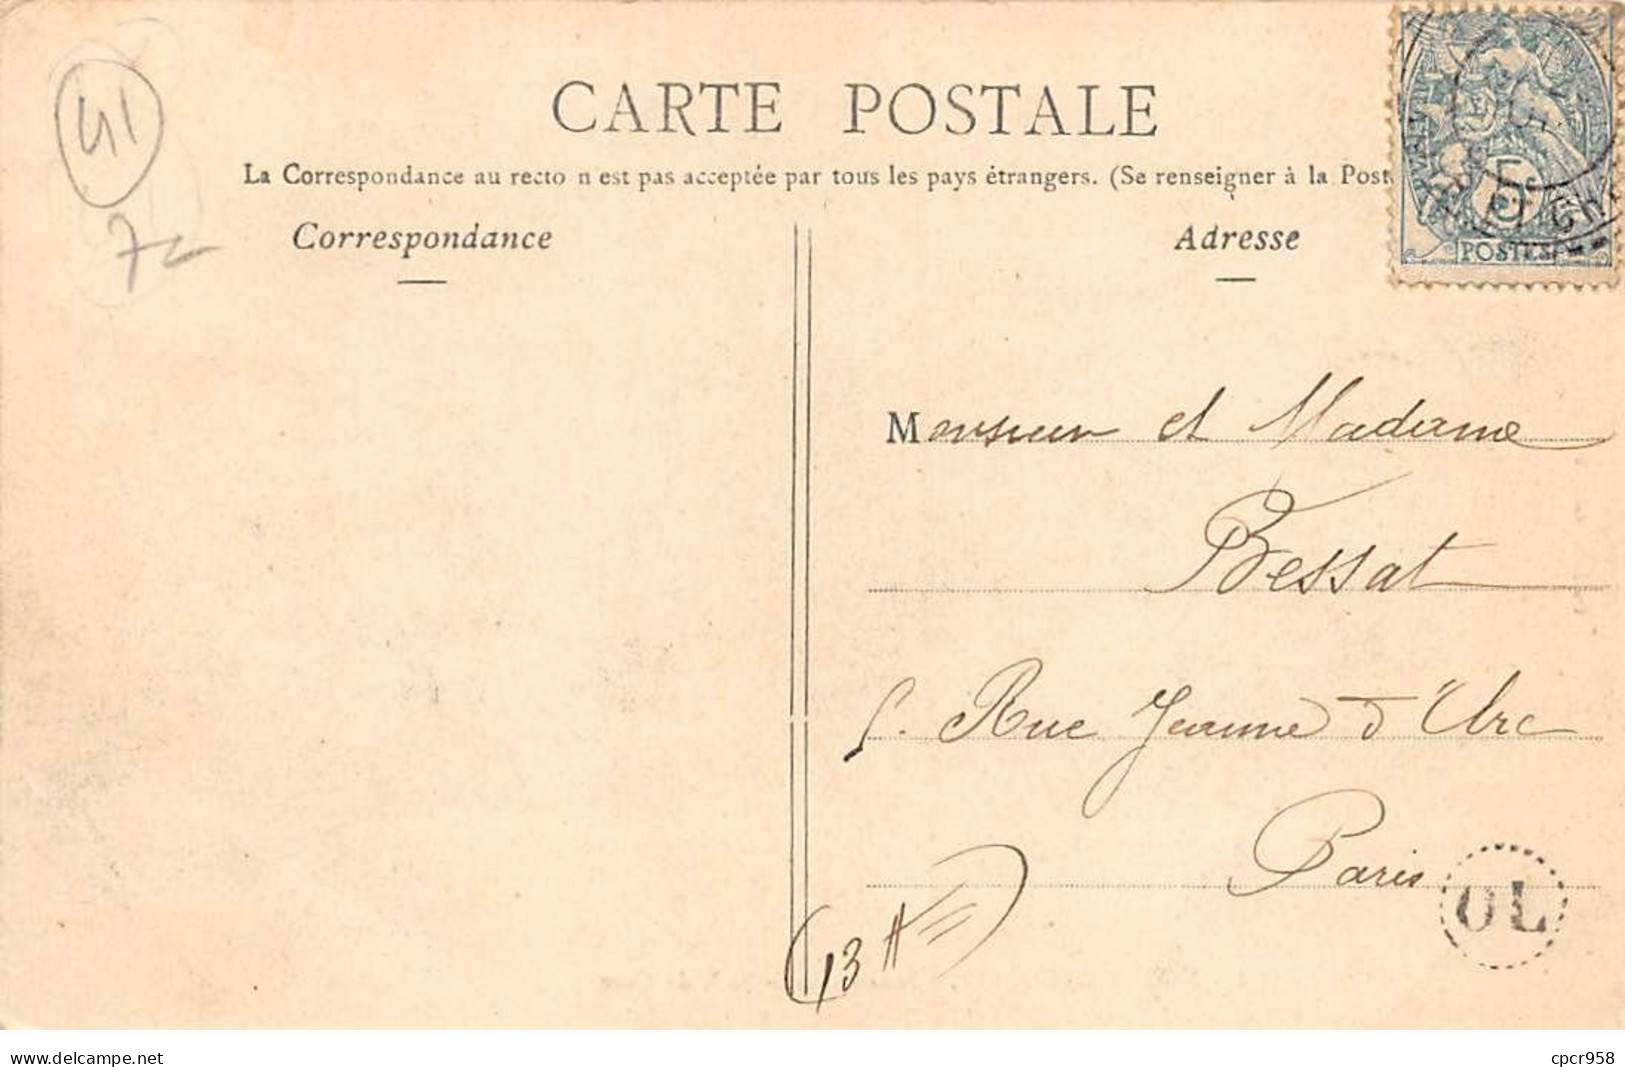 41
7
CARTE POSTALE
La Correspondance au recto n est pas acceptée par tous les pays étrangers. (Se renseigner à la Post
Correspondance
Adresse
5c
POSTES
Monsieur et Madame
Bessat
5. Rue Jeanne d'Arc
Paris
(13
OL
delcampe.net
cpcr958